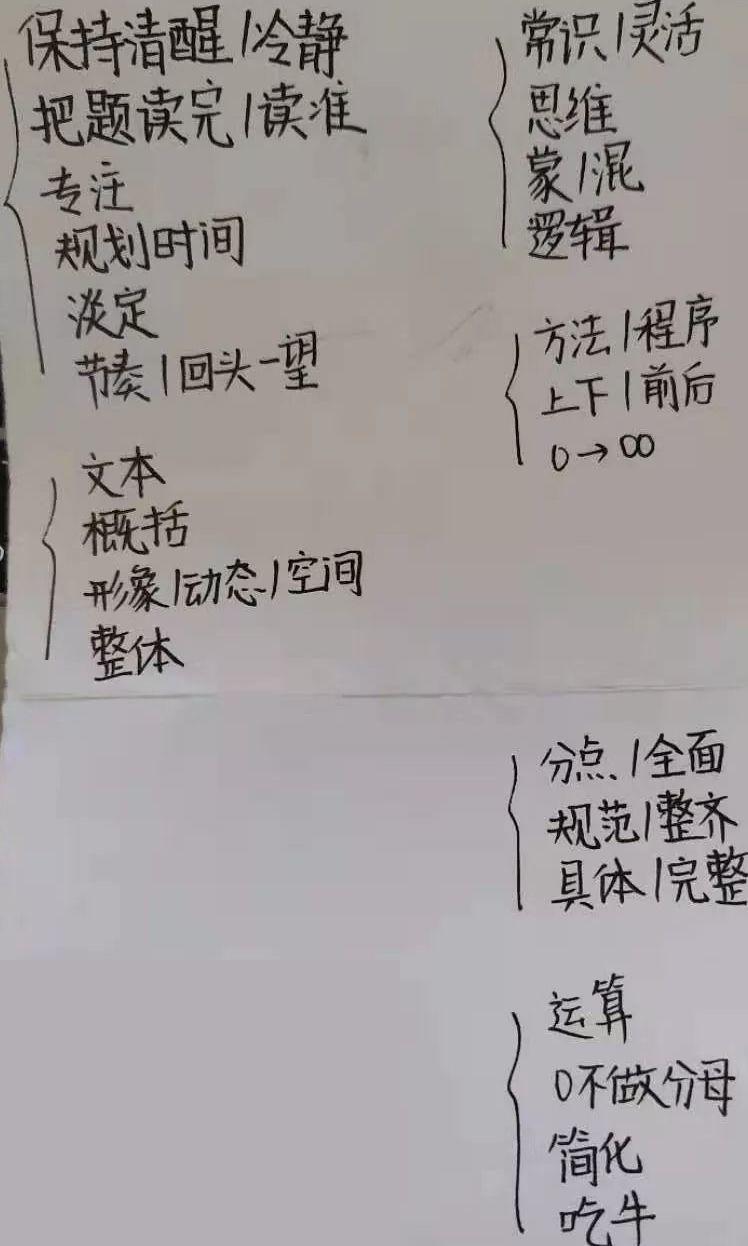 保持清醒/冷静
把题读完/读准
专注
规划时间
淡定
节奏/回头一望
文本
概括
形象/动态/空间
整体
常识/灵活
思维
蒙/混
逻辑
方法/程序
上下/前后
0→∞
分点/全面
规范/整齐
具体/完整
运算
0不做分母
简化
吃牛